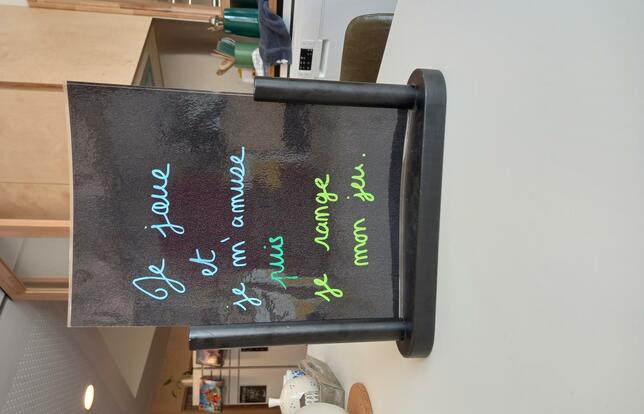 Je joue
et
je m'amuse
puis
je range
mon jeu.